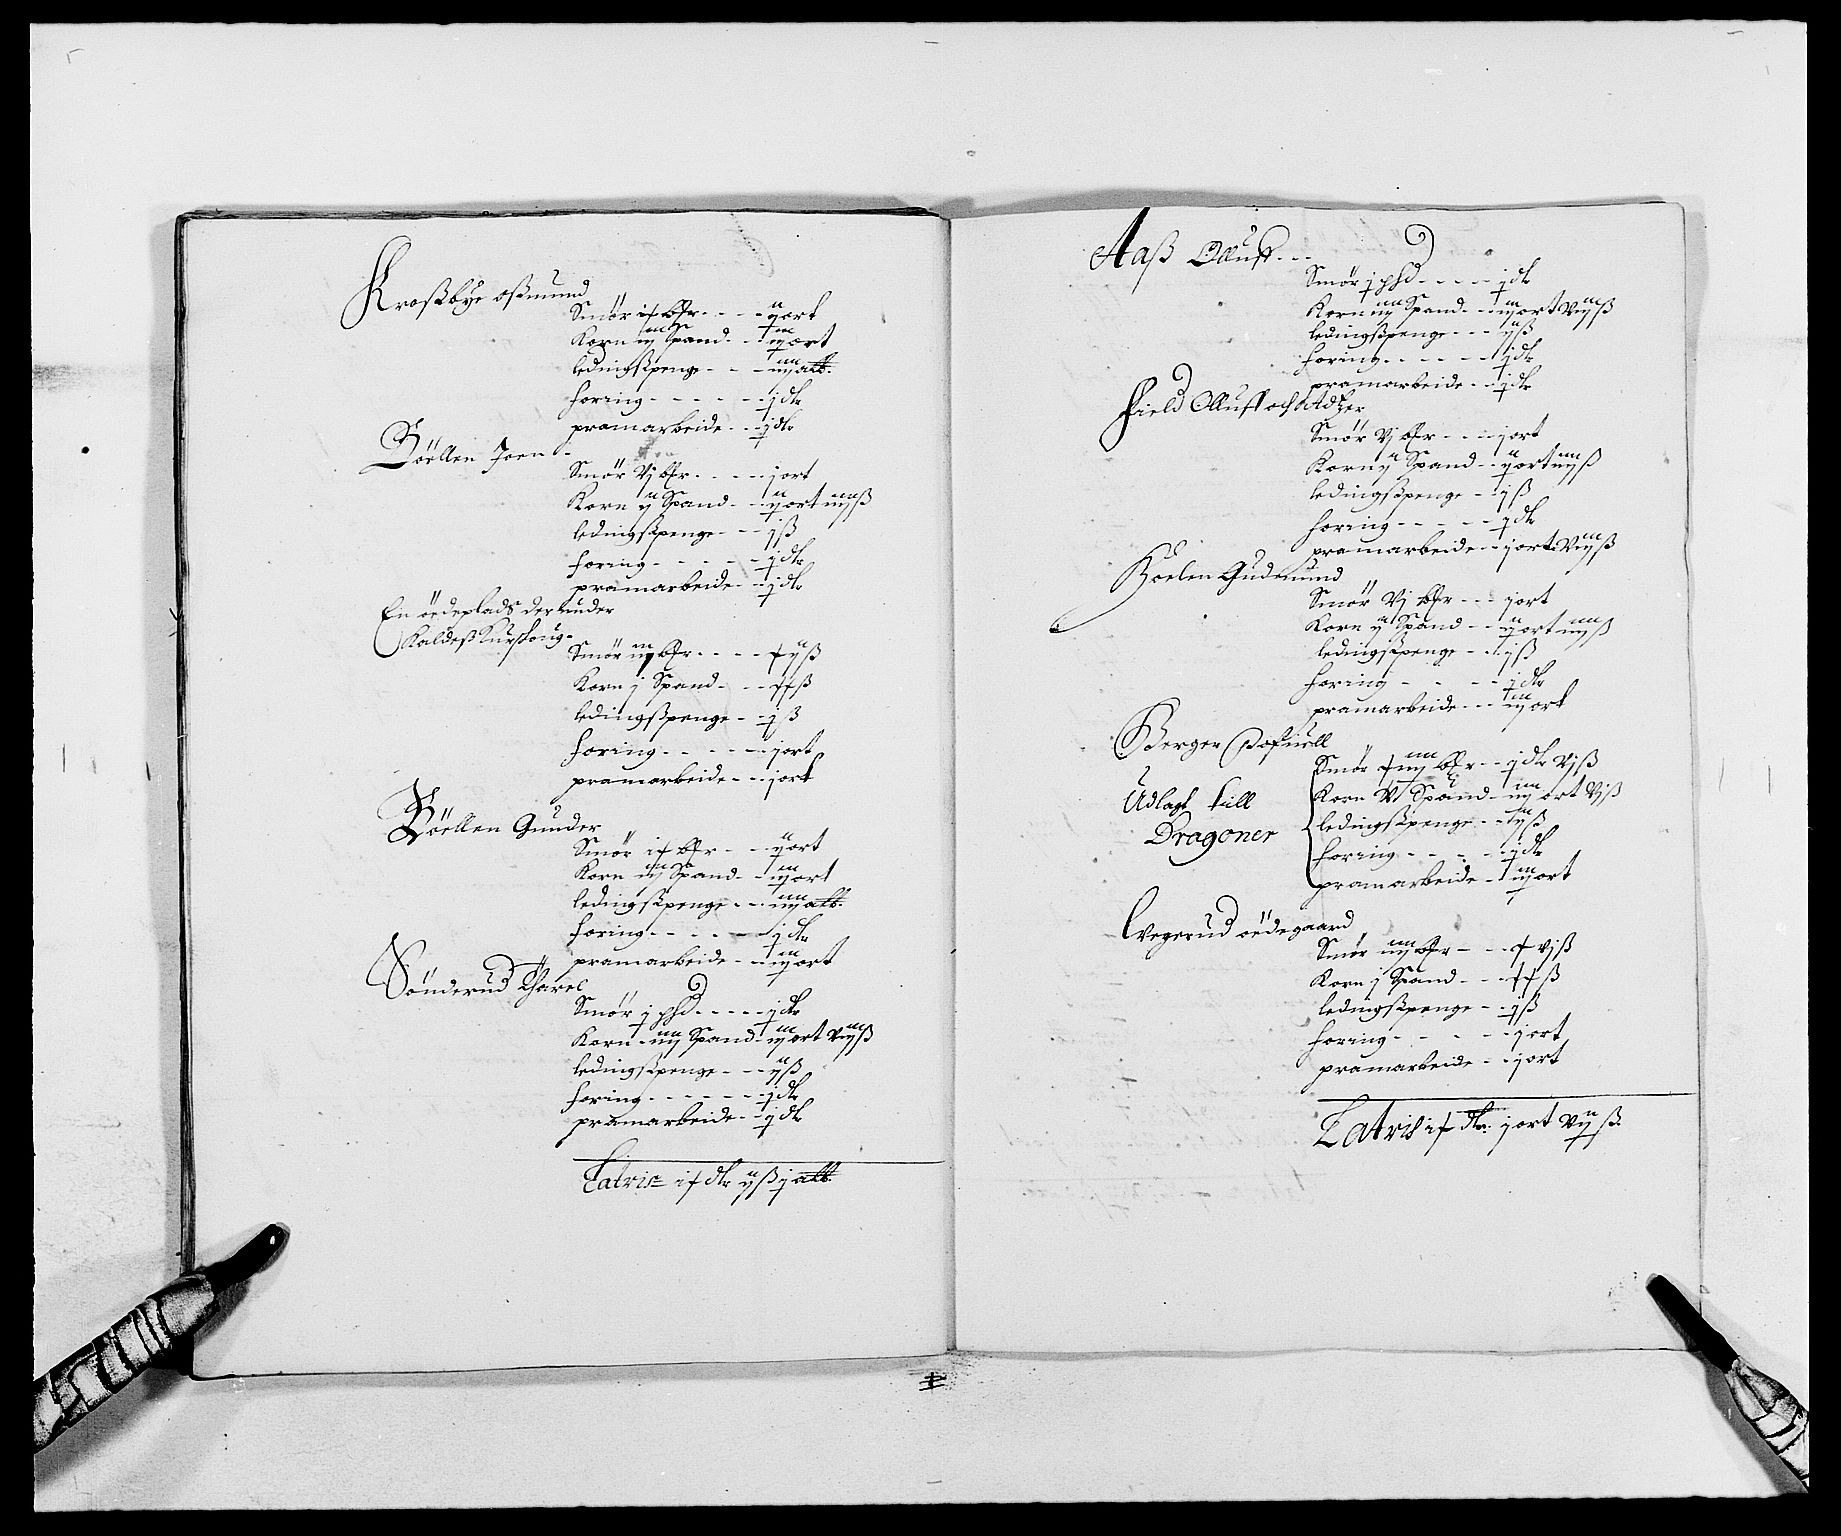 Kroßbye Oßmund
Smör if bfr - - - - ij ort
Korn iij Spand - - iij ort
ledingßpenge - - - iiij alb.
foring - - - - - - j dlr
pramarbeide - - j dlr
Böellen Joen -
Smör Vj bfr - - - - j ort
Korn ij Spand - - ij ort iiij ß
ledingßpenge - - - j ß
foring - - - - - - j dlr
pramarbeide - - j dlr
En ödeplads der under
Kaldeß
Smör iij bfr - - - - f ij ß
Korn j Spand - - - ff ß
ledingßpenge - - j ß
foring - - - - - - j ort
pramarbeide - - j ort
Böellen Gunder
Smör if bfr - - - ij ort
Korn iij Spand - - iij ort
ledingßpenge - - - iiij alb.
foring - - - - - - j dlr
pramarbeide - - iij ort
Sönderud Tharel
Smör j phd - - - - - j dlr
Korn - iiij Spand - iij ort Viij ß
ledingßpenge - - - ij ß
foring - - - - - - j dlr
pramarbeide - - j dlr
Latris if dlr ij ß j alb.
Aaß Olluff - - -
Smör j phd - - - - - j dlr
Korn iiij Spand - - iij ort Viij ß
ledingßpenge - - - ij ß
foring - - - - - - j dlr
pramarbeide - - j dlr
Field Olluff och Adtzer
Smör Vj bfr - - - - j ort
Korn ij Spand - - ij ort iiij ß
ledingßpenge - - j ß
foring - - - - - j dlr
pramarbeide - - j ort Viij ß
Hoelen Gudmund
Smör Vj bfr - - - j ort
Korn ij Spand - - ij ort iiij ß
ledingßpenge - - - j ß
foring - - - - j dlr
pramarbeide - - - iij ort
Berger Pofuell
Udlagt till
Dragoner
Smör f iiij bfr - - j dlr Vj ß
Korn V Spand - iiij ort Vj ß
ledingßpenge - - - ij ß
foring - - - - - j dlr
pramarbeide - - iij ort
Vegerud ödegaard
Smör iiij bfr - - - f Vj ß
Korn j Spand - - - ff ß
ledingßpenge - - - j ß
foring - - - - - j ort
pramarbeide - - j ort
Latris if dlr. j ort Vij ß.